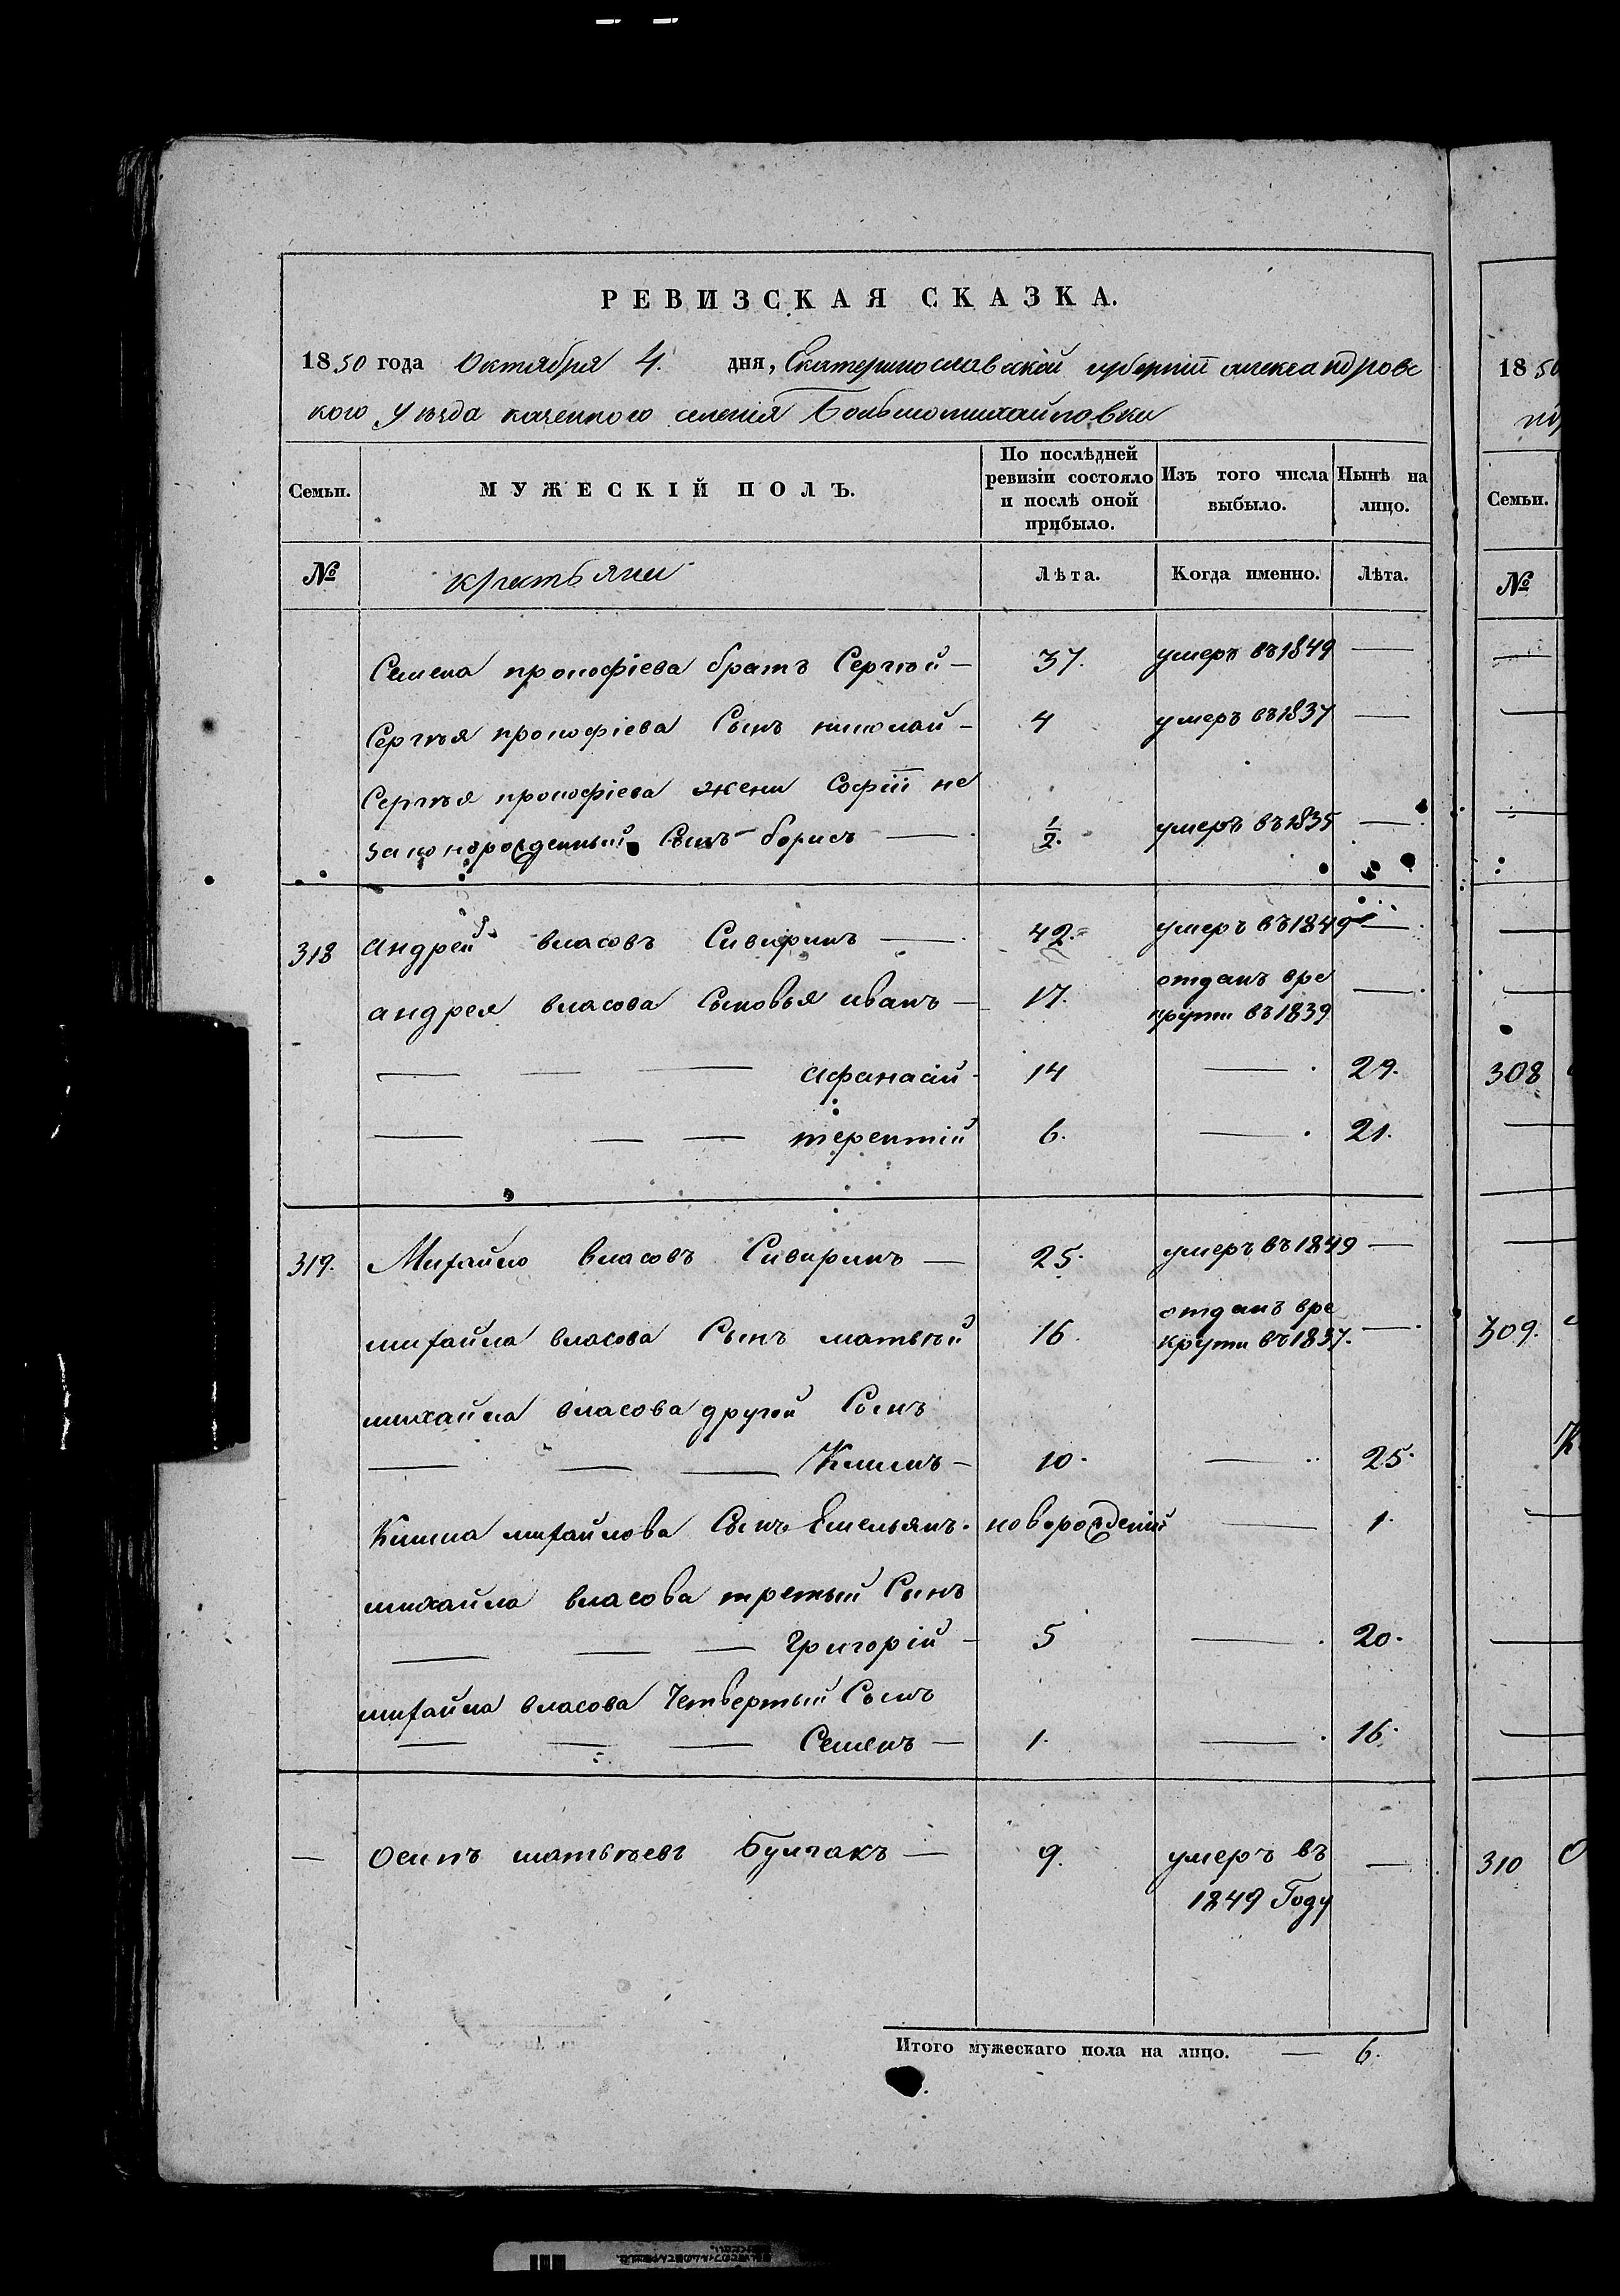 РЕВИЗСКАЯ СКАЗКА.
1850 года Октября 4. дня, Екатеринославской губернiи александровс
кого уѣзда казенного селенiя Большомихайловки
Семьи.
МУЖЕСКІЙ ПОЛЪ.
По послѣдней ревизіи состояло и послѣ оной прибыло.
Изъ того числа выбыло.
Нынѣ на лицо.
№ крестьяни Лѣта. Когда именно. Лѣта.
Семена прокофіева братъ Сергѣй — 37. умеръ въ 1849 —
Сергѣя прокофіева Сынъ николай — 4 умеръ въ 1837 —
Сергѣя прокофіева жени Софіи не
законорожденный Сынъ борисъ — 1/2. умеръ въ 1835 —
318 андрей власовъ Сивиринъ — 42. умеръ въ 1849 —
андрея власова Сыновья иванъ — 17. отданъ вре
крути въ 1839 —
— — — афанасiй 14 — 29.
— — — терентiй 6. — 21.
319. Михайло власовъ Сивиринъ — 25. умеръ въ 1849 —
михайла власова Сынъ матвѣй 16. отданъ вре
крути въ 1837. —
михайла власова другой Сынъ
— — — Климъ — 10. — 25.
Клима михайлова Сынъ Емельянъ. новорожденiй — 1.
михайла власова третый Сынъ
— — — Григорій — 5 — 20.
михайла власова Четвертый Сынъ
— — — Семенъ — 1. — 16.
— Осипъ матвѣевъ Булгакъ — 9. умеръ въ —
1849 Году
Итого мужескаго пола на лицо. — 6.
1850
Семьи.
№
308
309.
310